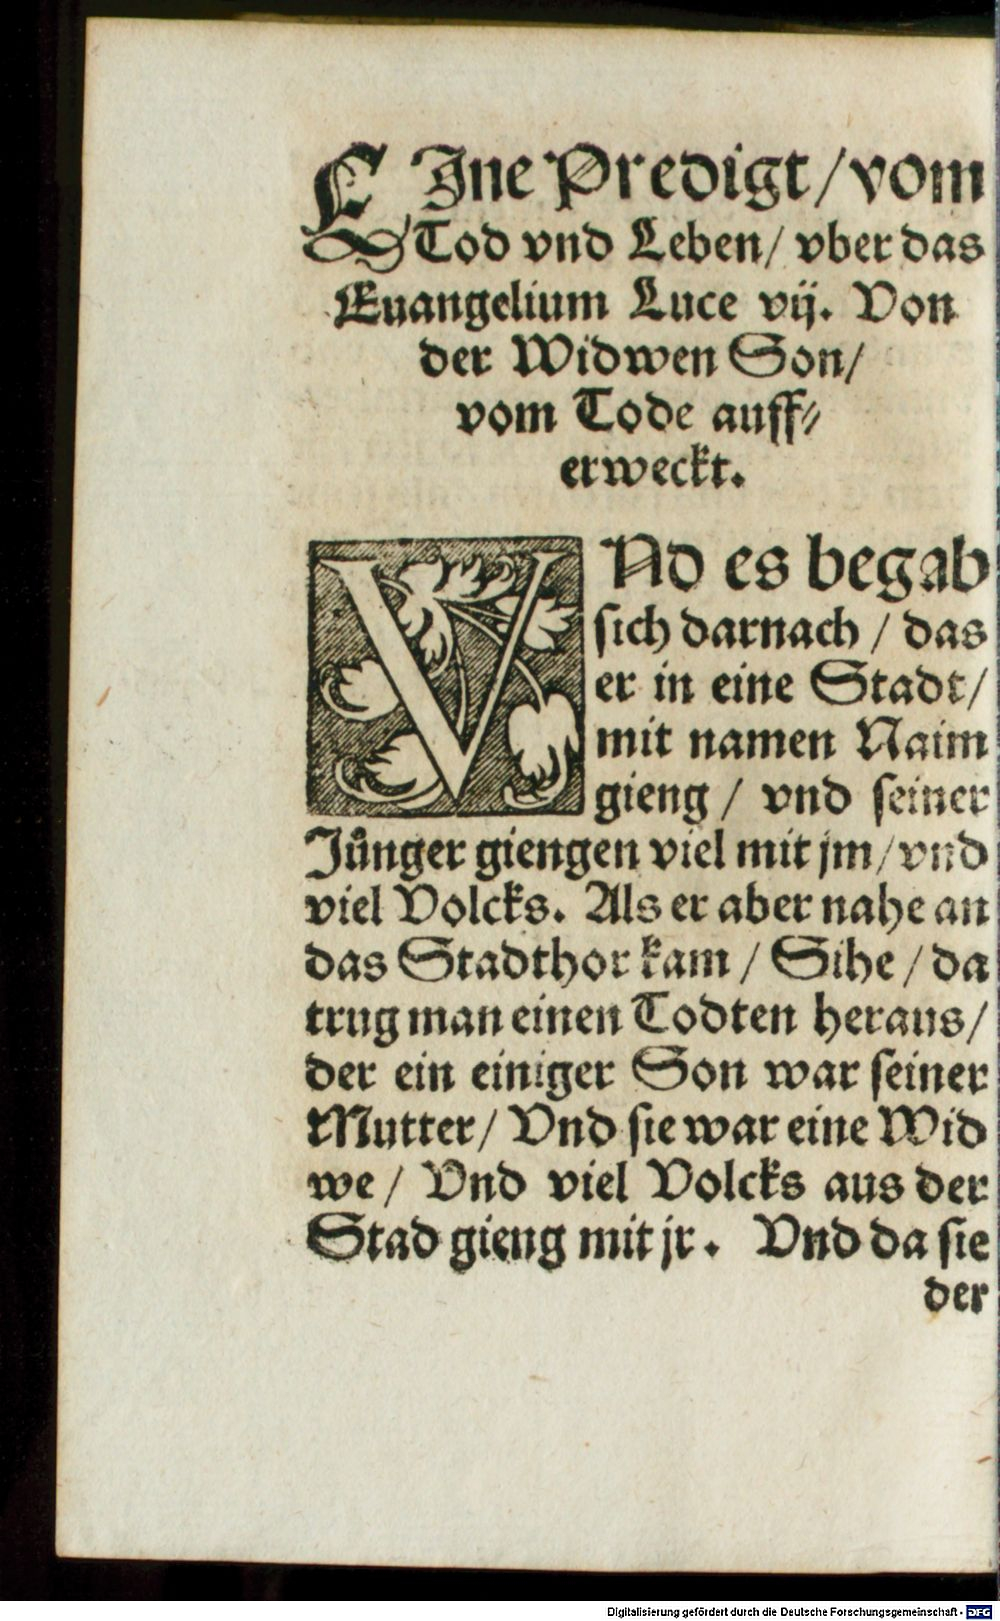 EJne Predigt / vom
Tod vnd Leben / vber das
Euangelium Luce vij. Von
der Widwen Son /
vom Tode auff⸗
erweckt.
VNd es begab
sich darnach / das
er in eine Stadt /
mit namen Naim
gieng / vnd seiner
Jůnger giengen viel mit jm / vnd
viel Volcks. Als er aber nahe an
das Stadthor kam / Sihe / da
trug man einen Todten heraus /
der ein einiger Son war seiner
Mutter / Vnd sie war eine Wid
we / Vnd viel Volcks aus der
Stad gieng mit jr. Vnd da sie
der
Digitalisierung gefördert durch die Deutsche Forschungsgemeinschaft - DFG